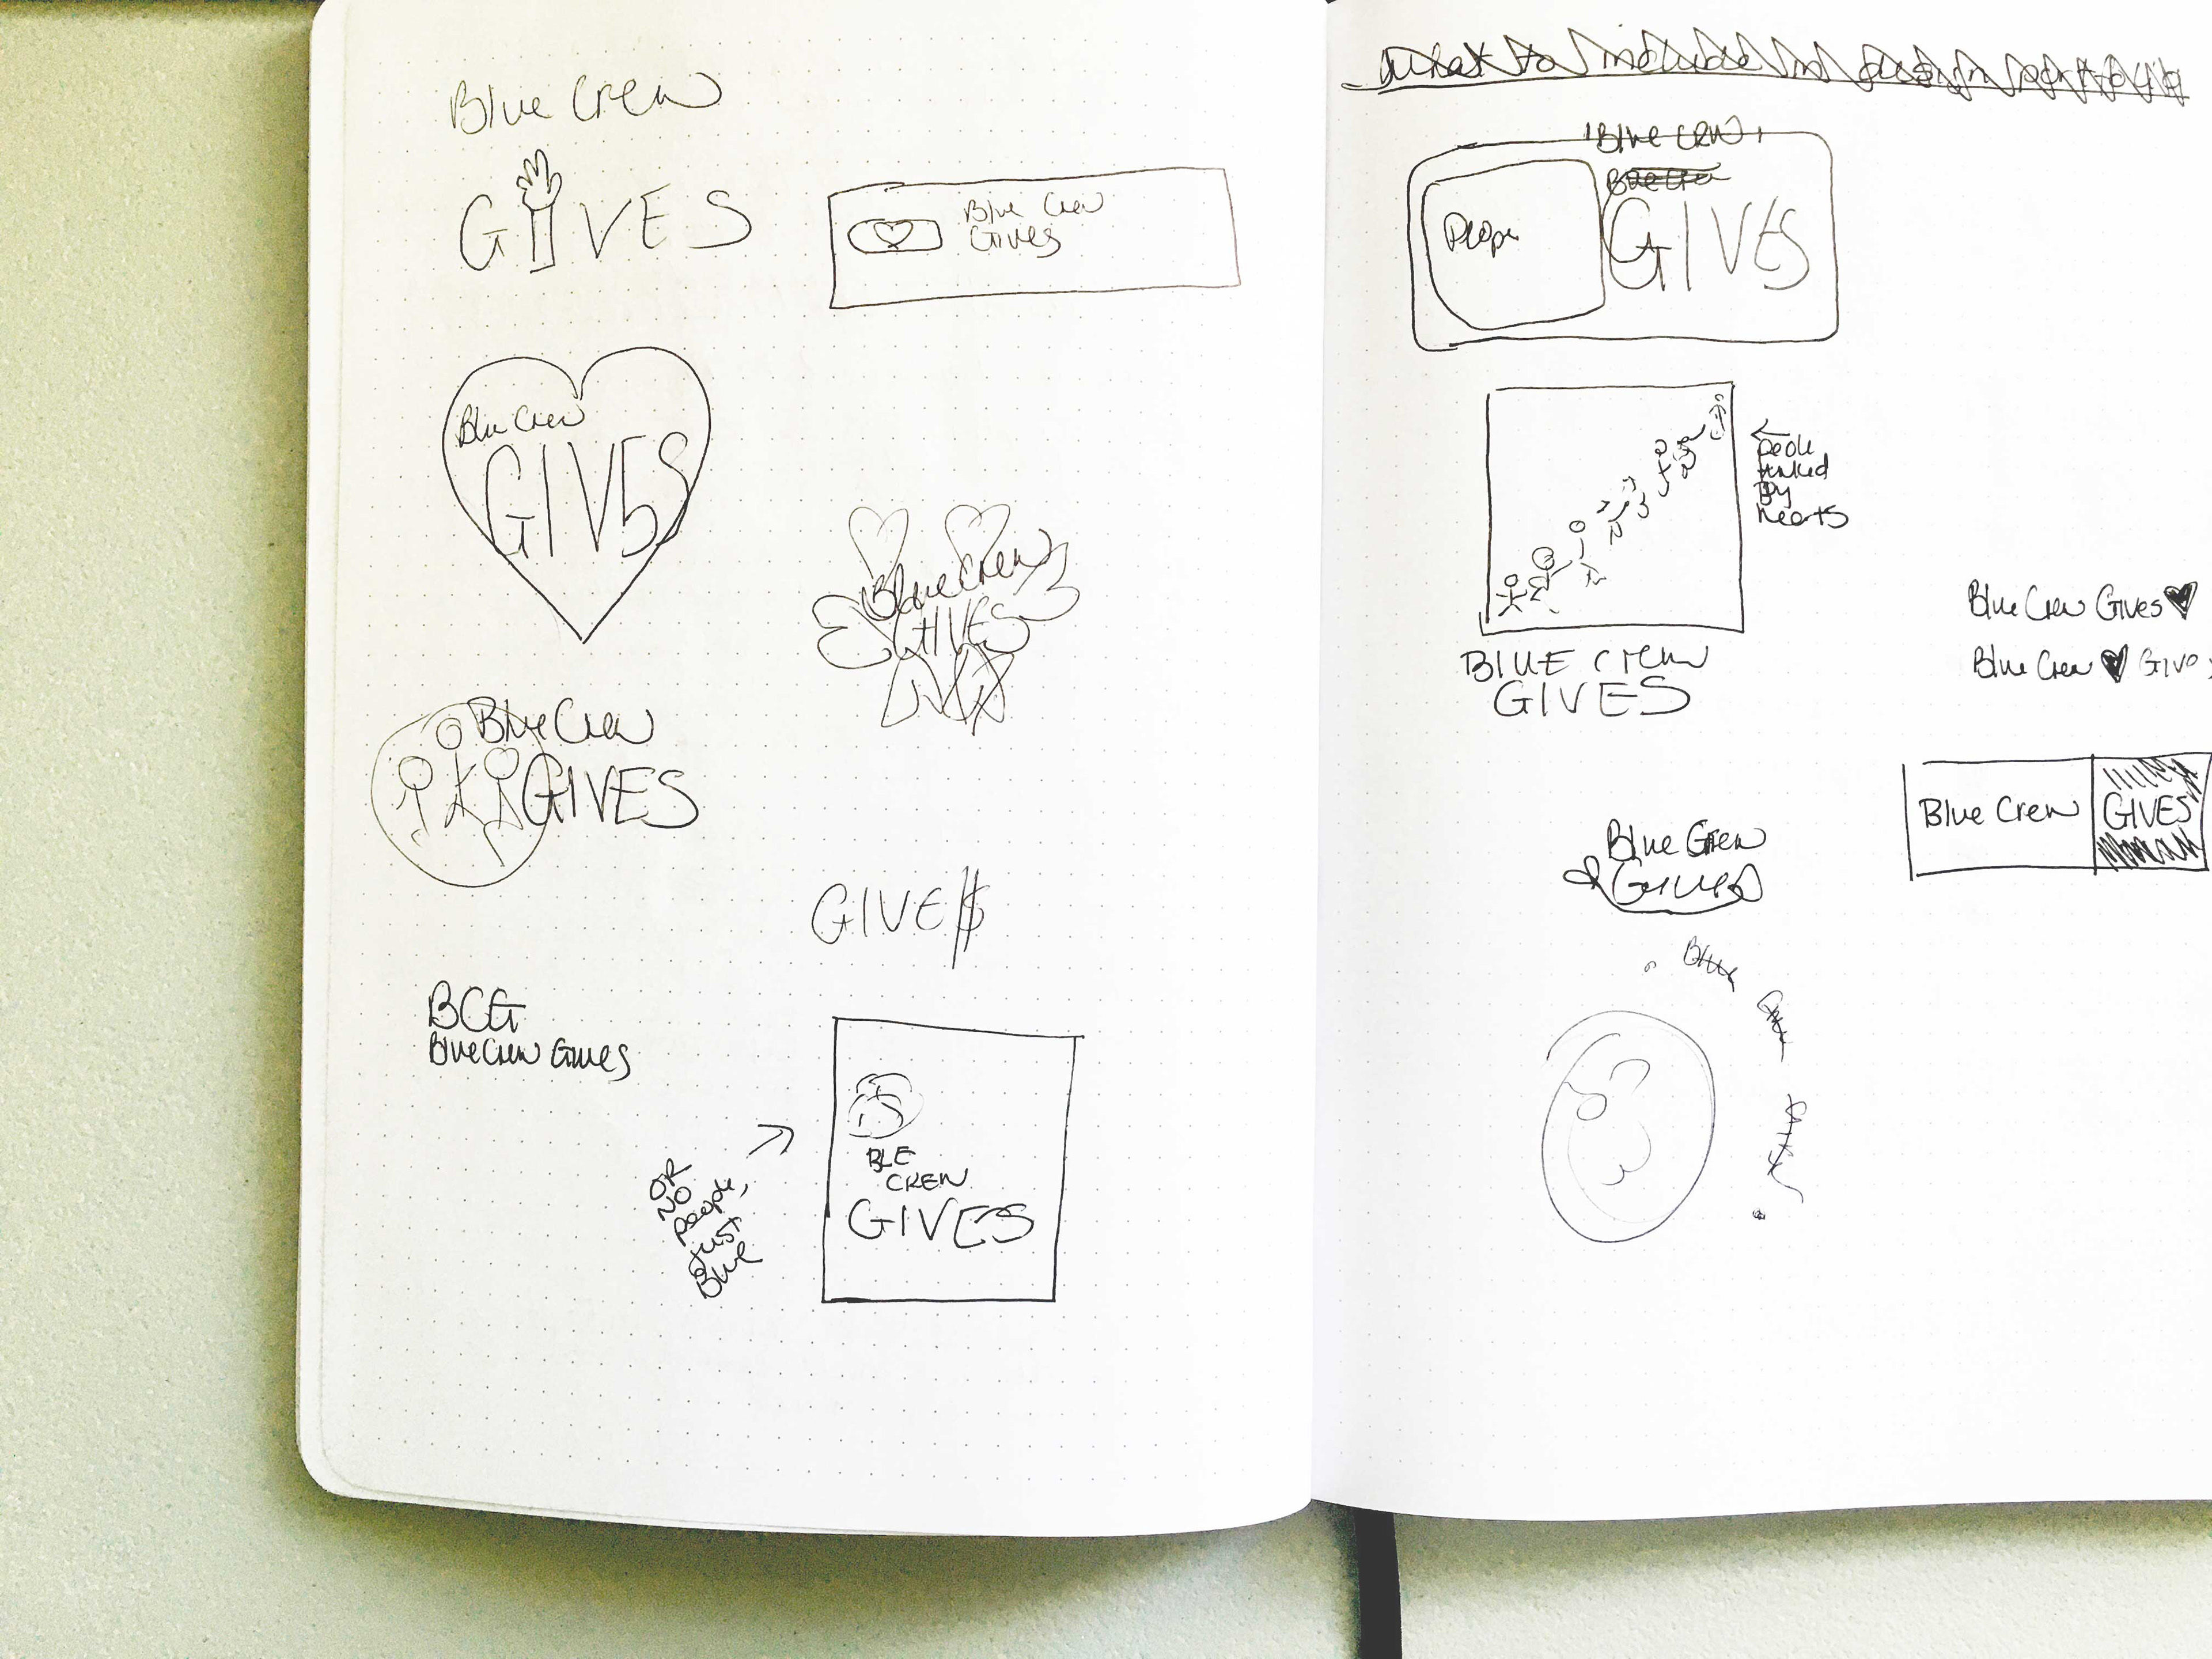 Blue Crew
GIVES
Blue Crew
Gives
Blue Crew
GIVES
Blue Crew
GIVES
Blue Crew
GIVES
GIVE$
BCG
Blue Crew Gives
OR
NO
people,
Just
Blue
BLE
CREW
GIVES
What to include in design portfolio
Blue Crew
GIVES
people
linked
By
hearts
BLUE Crew
GIVES
Blue Crew Gives
Blue Crew Gives
Blue Crew GIVES
Blue Crew
Gives
Blue